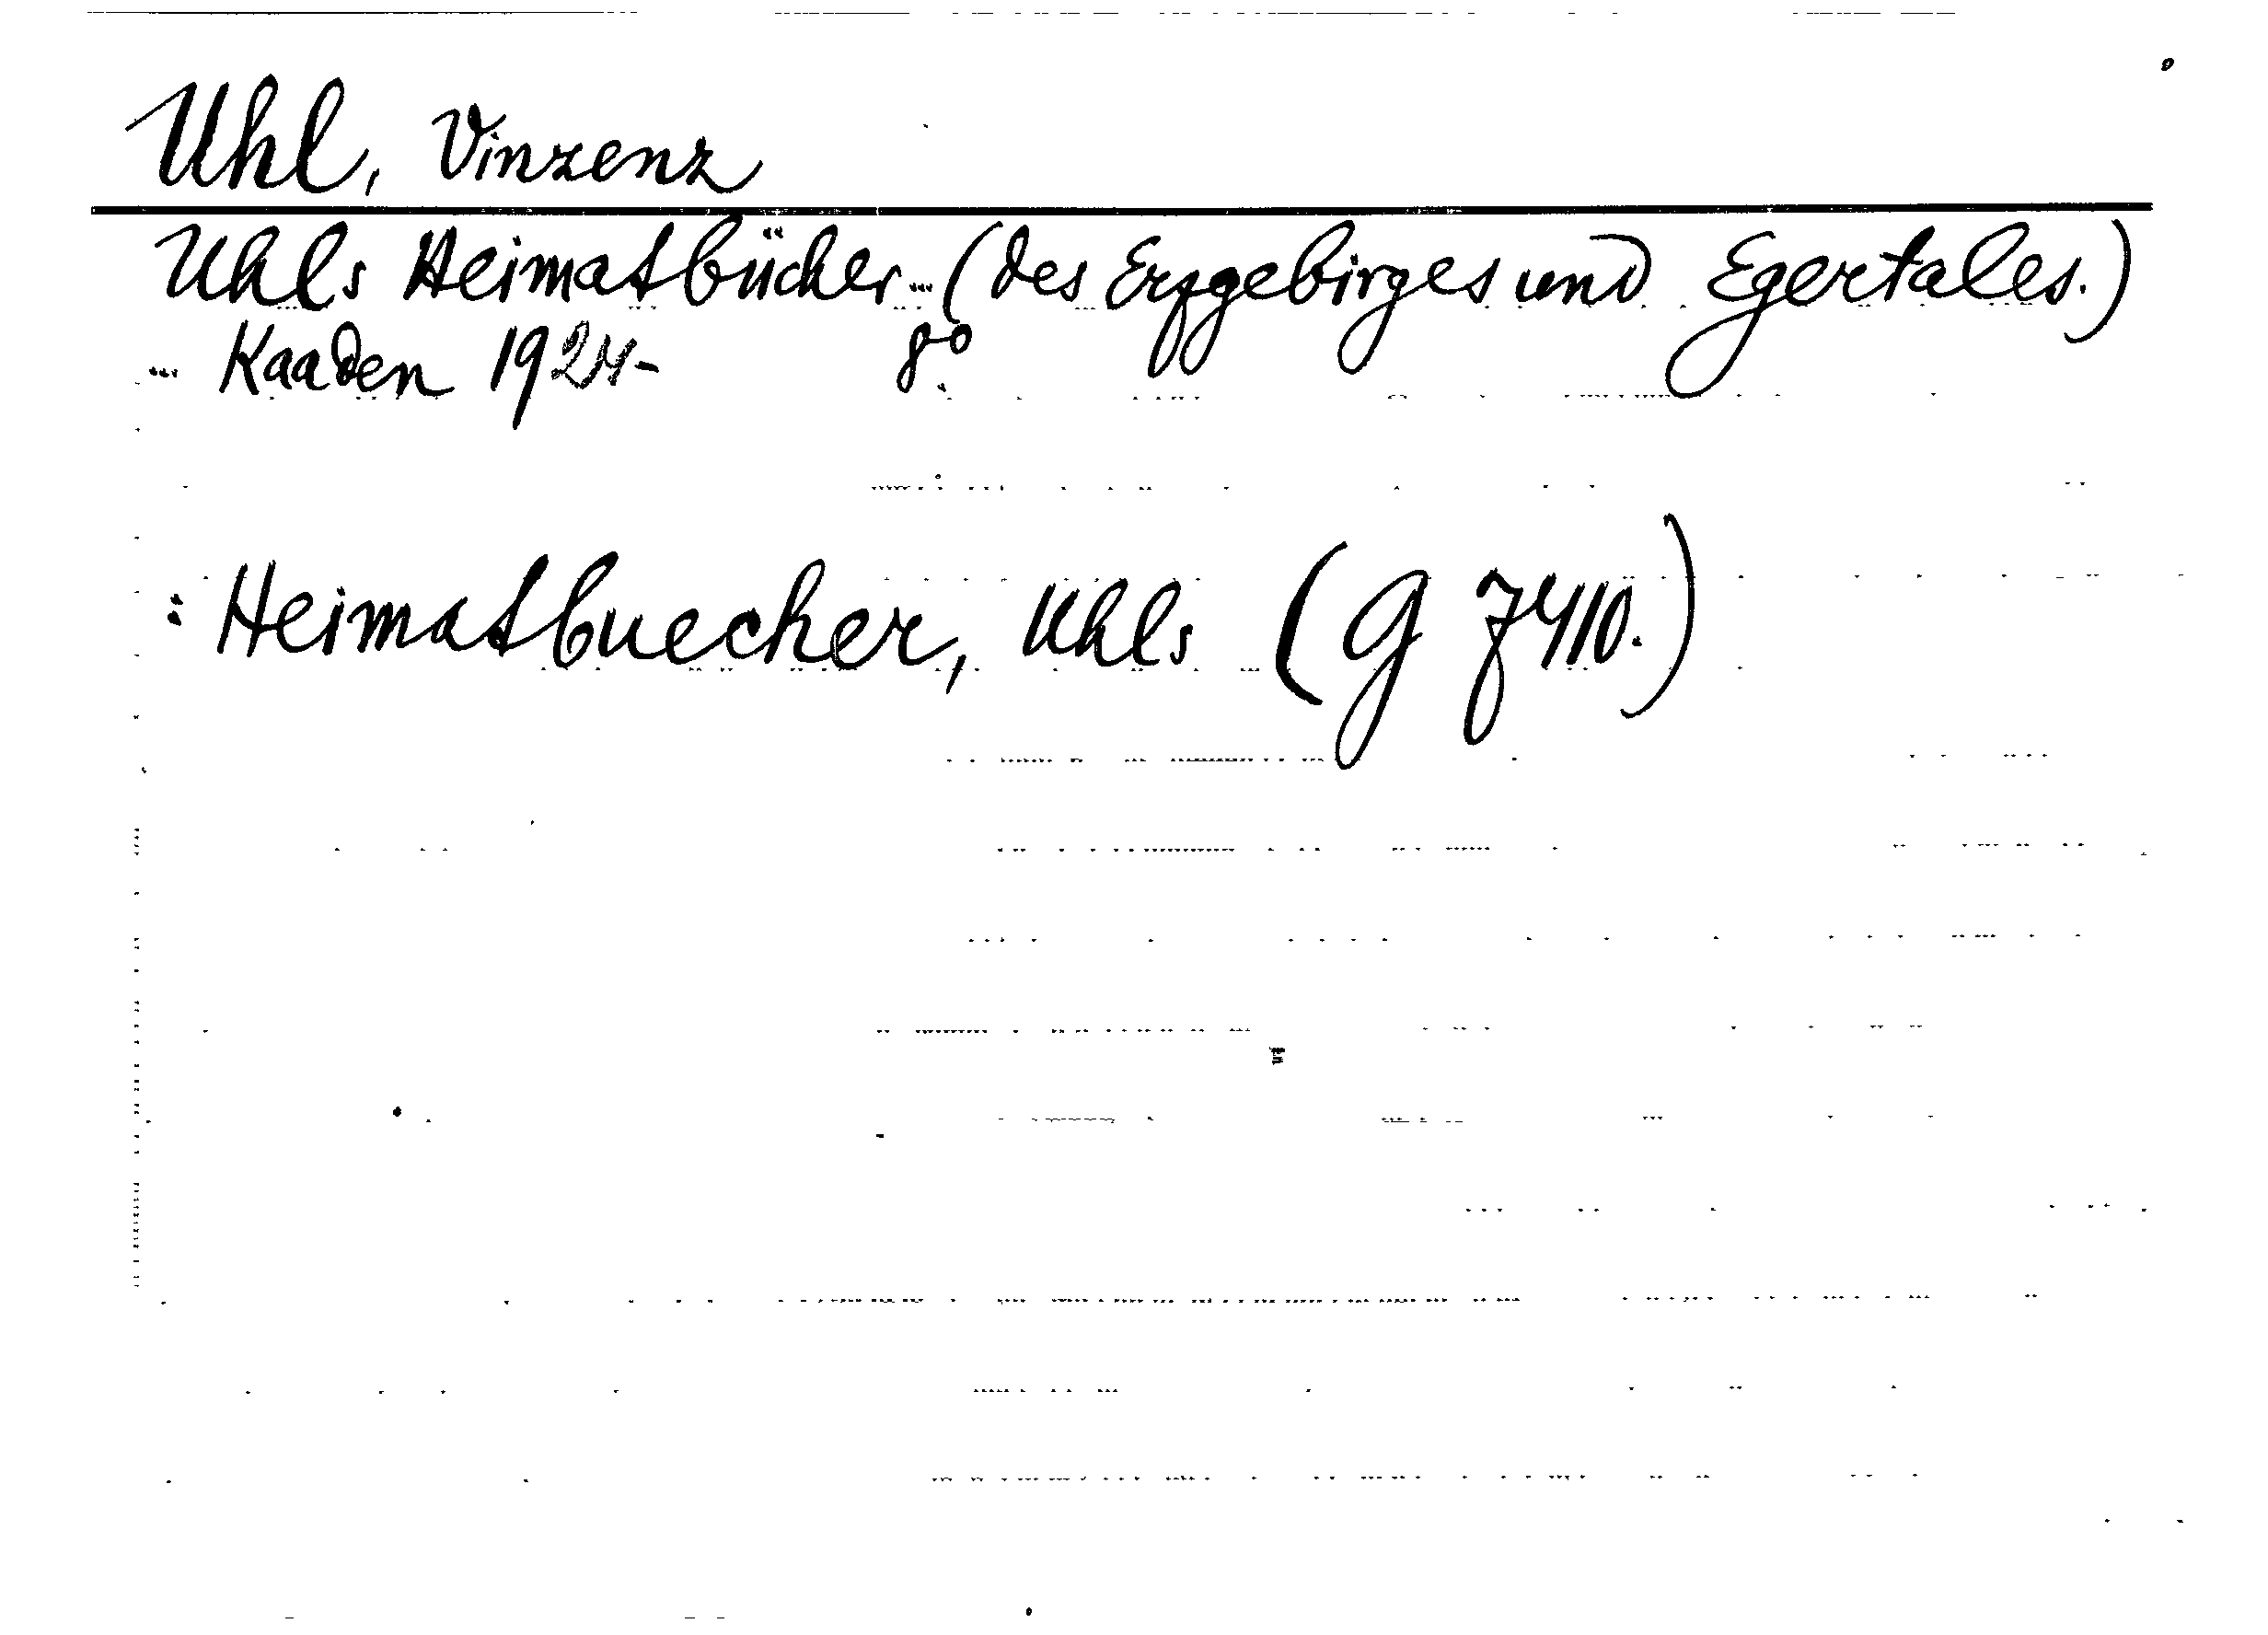 Uhl, Vinzenz
Uhls Heimatbücher (des Erzgebirges und Egertales.)
Kaaden 1924- 8°.
: Heimatbuecher, Uhls (G 7410.)